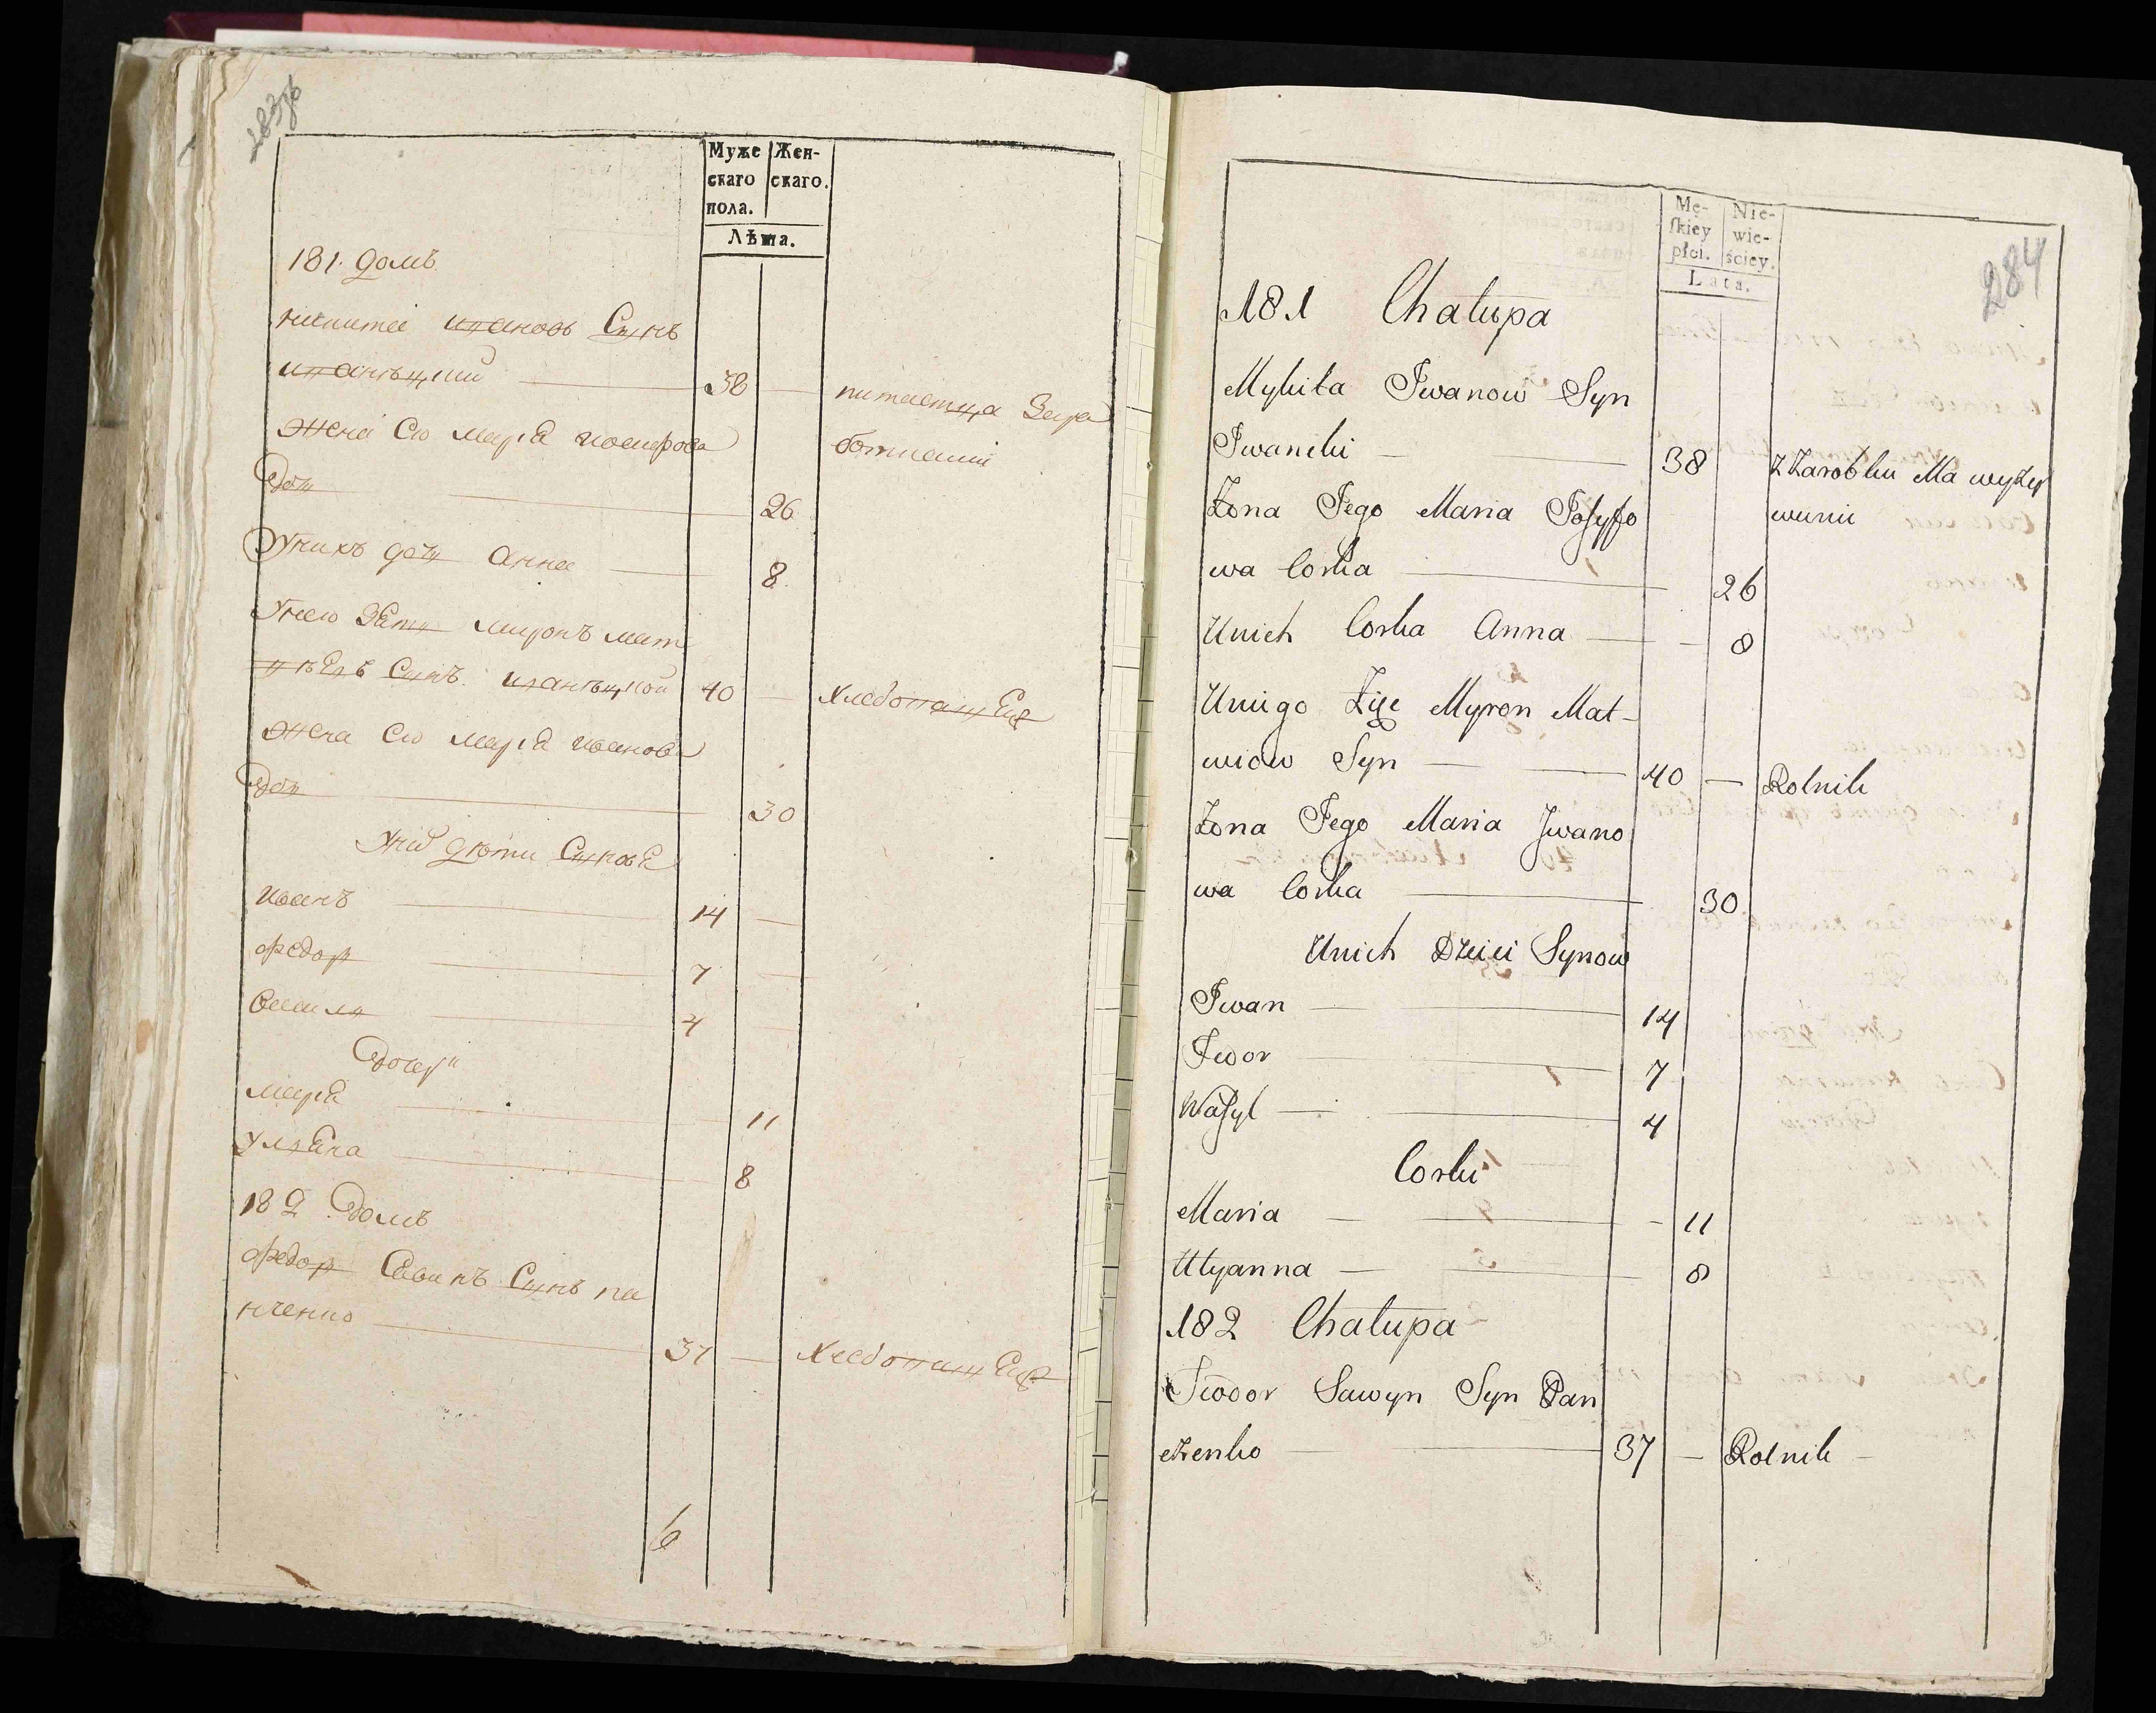 283зв
Муже
скаго
пола.
Жен-
скаго.
Лѣта.
181. домъ
никита ивановъ Сынъ
иваницкий 38 — питаетца Зара
ботками
жена его мария иосифова
дочь 26
Унихъ дочь анна 8.
Унего жить миронъ мат
вѣевъ Сынъ иваницкой 40 — Хлебопашецъ
жена его мария иванова
дочь 30
Уних дѣти Сыновья
иванъ 14 —
федор 7 —
василь 4 —
дочери
мария 11
ульяна 8
182 домъ
федор Савинъ Сынъ па
нченко 37 — Хлебопашецъ
6
284
Mę-
skiey
płci.
Nie-
wie-
ściey.
Lata.
181 Chałupa
Mykita Iwanow Syn
Iwancki — 38 Z Zarobku Ma wyżey
wunii
Żona Jego Maria Josyfo
wa Corka 26
Unich Corka Anna — 8
Uniego Żyje Myron Mat-
wiow Syn — 40 — Rolnik
Żona Jego Maria Iwano
wa Corka 30
Unich Dzieci Synow
Iwan — 14
Fedor 7
Wasyl — 4
Corki
Maria — 11
Ulyanna — 8
182 Chałupa
Feodor Sawyn Syn Pan
czenko — 37 — Rolnik —